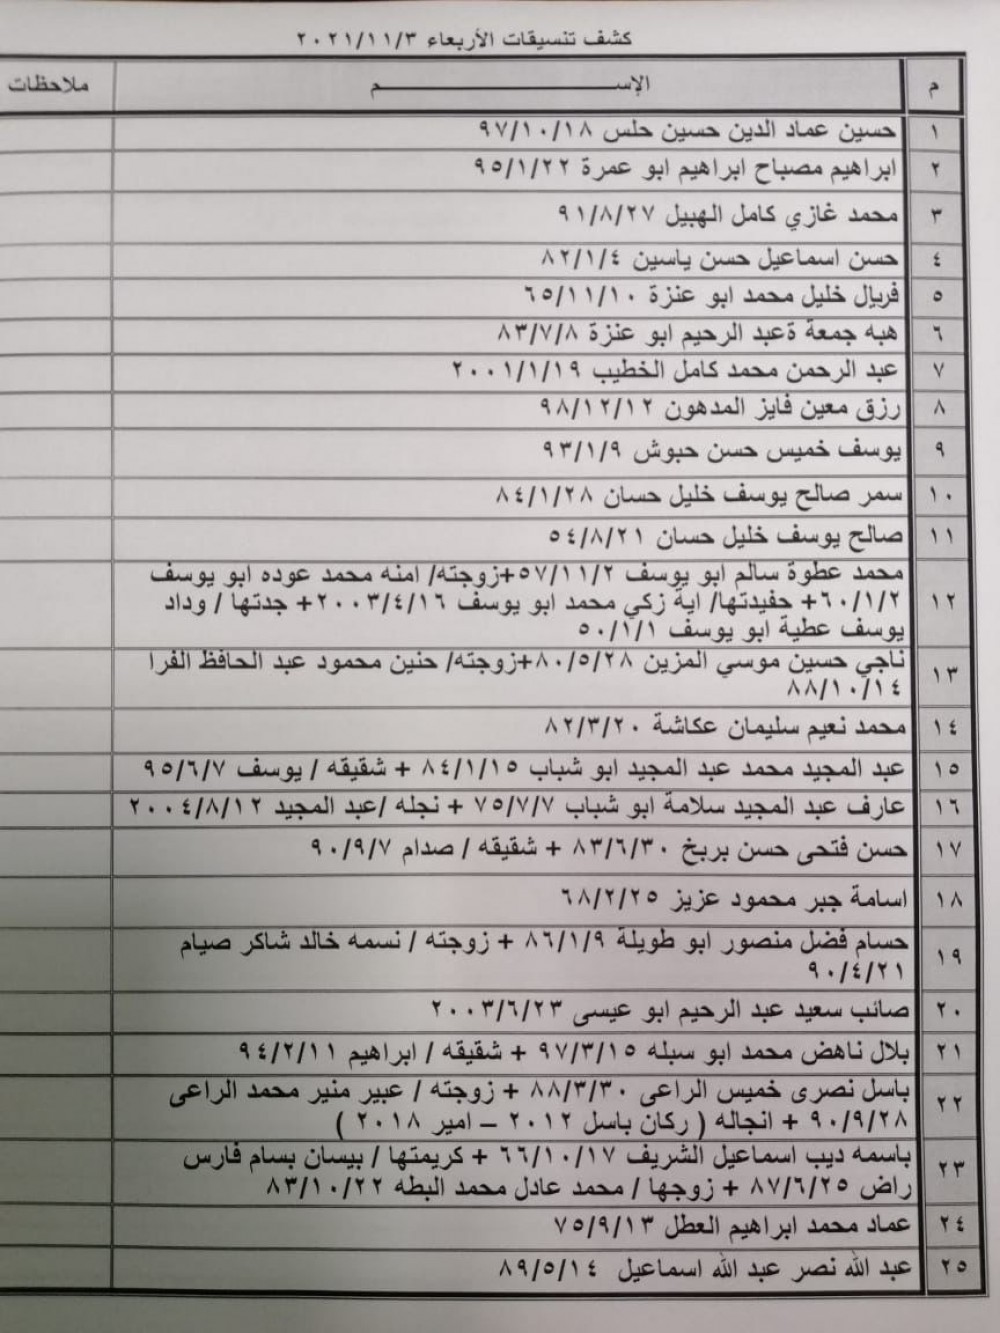 كشف تنسيقات الأربعاء ٢٠٢١/١١/٣
م الإســـــــــم ملاحظات
١ حسين عماد الدين حسين حلس ٩٧/١٠/١٨
٢ ابراهيم مصباح ابراهيم ابو عمرة ٩٥/١/٢٢
٣ محمد غازي كامل الهبيل ٩١/٨/٢٧
٤ حسن اسماعيل حسن ياسين ٨٢/١/٤
٥ فريال خليل محمد ابو عنزة ٦٥/١١/١٠
٦ هبه جمعة ةعبد الرحيم ابو عنزة ٨٣/٧/٨
٧ عبد الرحمن محمد كامل الخطيب ٢٠٠١/١/١٩
٨ رزق معين فايز المدهون ٩٨/١٢/١٢
٩ يوسف خميس حسن حبوش ٩٣/١/٩
١٠ سمر صالح يوسف خليل حسان ٨٤/١/٢٨
١١ صالح يوسف خليل حسان ٥٤/٨/٢١
١٢ محمد عطوة سالم ابو يوسف ٥٧/١١/٢+زوجته/ امنه محمد عوده ابو يوسف
٦٠/١/٢+ حفيدتها/ اية زكي محمد ابو يوسف ٢٠٠٣/٤/١٦+ جدتها / وداد
يوسف عطية ابو يوسف ٥٠/١/١
١٣ ناجي حسين موسي المزين ٨٠/٥/٢٨+زوجته/ حنين محمود عبد الحافظ الفرا
٨٨/١٠/١٤
١٤ محمد نعيم سليمان عكاشة ٨٢/٣/٢٠
١٥ عبد المجيد محمد عبد المجيد ابو شباب ٨٤/١/١٥ + شقيقه / يوسف ٩٥/٦/٧
١٦ عارف عبد المجيد سلامة ابو شباب ٧٥/٧/٧ + نجله /عبد المجيد ٢٠٠٤/٨/١٢
١٧ حسن فتحى حسن بربخ ٨٣/٦/٣٠ + شقيقه / صدام ٩٠/٩/٧
١٨ اسامة جبر محمود عزيز ٦٨/٢/٢٥
١٩ حسام فضل منصور ابو طويلة ٨٦/١/٩ + زوجته / نسمه خالد شاكر صيام
٩٠/٤/٢١
٢٠ صائب سعيد عبد الرحيم ابو عيسى ٢٠٠٣/٦/٢٣
٢١ بلال ناهض محمد ابو سبله ٩٧/٣/١٥ + شقيقه / ابراهيم ٩٤/٢/١١
٢٢ باسل نصرى خميس الراعى ٨٨/٣/٣٠ + زوجته / عبير منير محمد الراعى
٩٠/٩/٢٨ + انجاله ( ركان باسل ٢٠١٢ – امير ٢٠١٨ )
٢٣ باسمه ديب اسماعيل الشريف ٦٦/١٠/١٧ + كريمتها / بيسان بسام فارس
راض ٨٧/٦/٢٥ + زوجها / محمد عادل محمد البطه ٨٣/١٠/٢٢
٢٤ عماد محمد ابراهيم العطل ٧٥/٩/١٣
٢٥ عبد الله نصر عبد الله اسماعيل ٨٩/٥/١٤